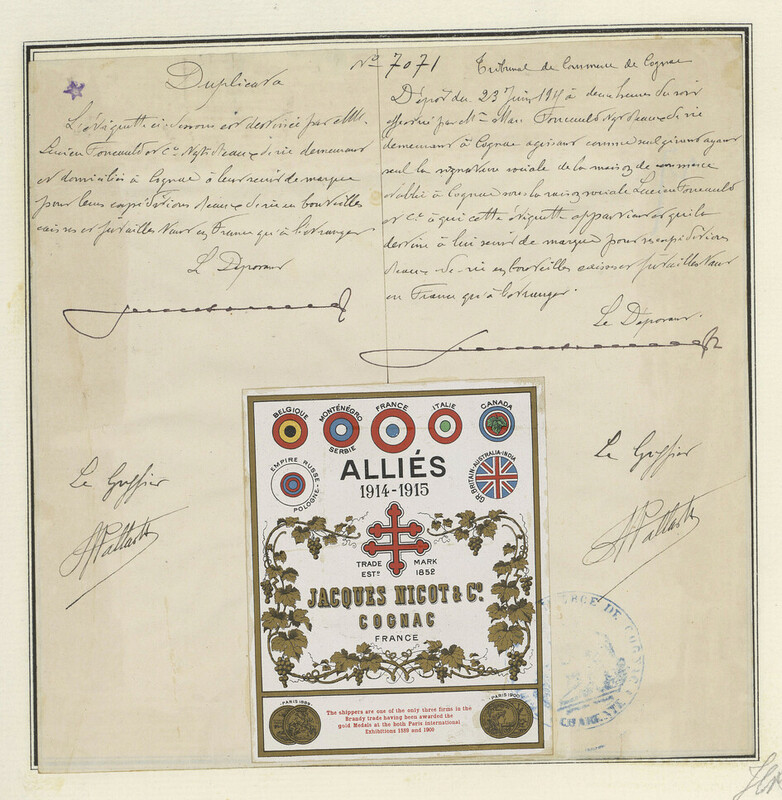 Duplicata
L'étiquette ci-dessous est destinée par MM.
Lucien Foucauld et Cie Négts d'eaux-de-vie demeurant
et domiciliés à Cognac à leur servir de marque
pour leurs expéditions d'eaux-de-vie en bouteilles
caisses et futailles tant en France qu'à l'étranger
Le Déposant
Le Greffier
No 7071 Tribunal de Commerce de Cognac
Dépôt du 23 Juin à deux heures du soir
effectué par Mr Foucauld Négt d'eaux-de-vie
demeurant à Cognac agissant comme seul gérant ayant
seul la signature sociale de la maison de commerce
établie à Cognac sous la raison sociale Lucien Foucauld
et Cie à qui cette étiquette appartient et qu'ils
destine à lui servir de marque pour ses expéditions
d'eaux-de-vie en bouteilles caisses et futailles tant
en France qu'à l'étranger.
Le Déposant.
Le Greffier
BELGIQUE
MONTÉNÉGRO
SERBIE
FRANCE
ITALIE
CANADA
EMPIRE RUSSE
POLOGNE
GR. BRITAIN-AUSTRALIA-INDIA
ALLIÉS
1914-1915
TRADE MARK
ESTD 1852
JACQUES NICOT & Co.
COGNAC
FRANCE
PARIS 1889
PARIS 1900
The shippers are one of the only three firms in the
Brandy trade having been awarded the
gold Medals at the both Paris international
Exhibitions 1889 and 1900
DE COGNAC
CHARENTE